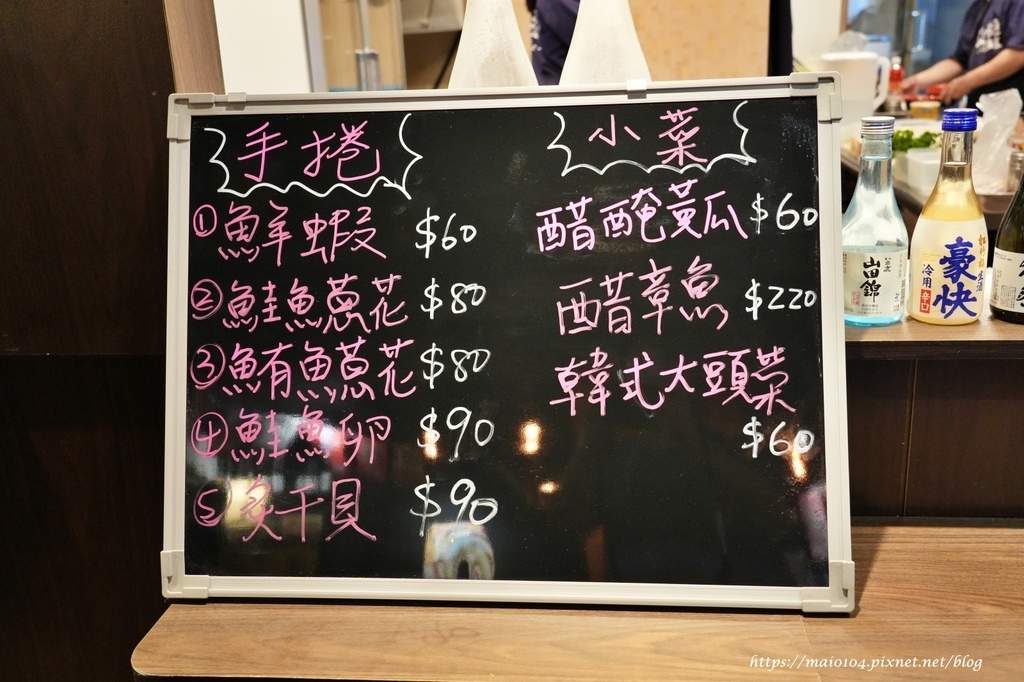 手捲
①鮮蝦 $60
②鮭魚蔥花 $80
③鮪魚蔥花 $80
④鮭魚卵 $90
⑤炙干貝 $90
小菜
醋醃黃瓜 $60
醋章魚 $220
韓式大頭菜
$60
山田錦
豪快
冷用
辛口
https://mai0104.pixnet.net/blog